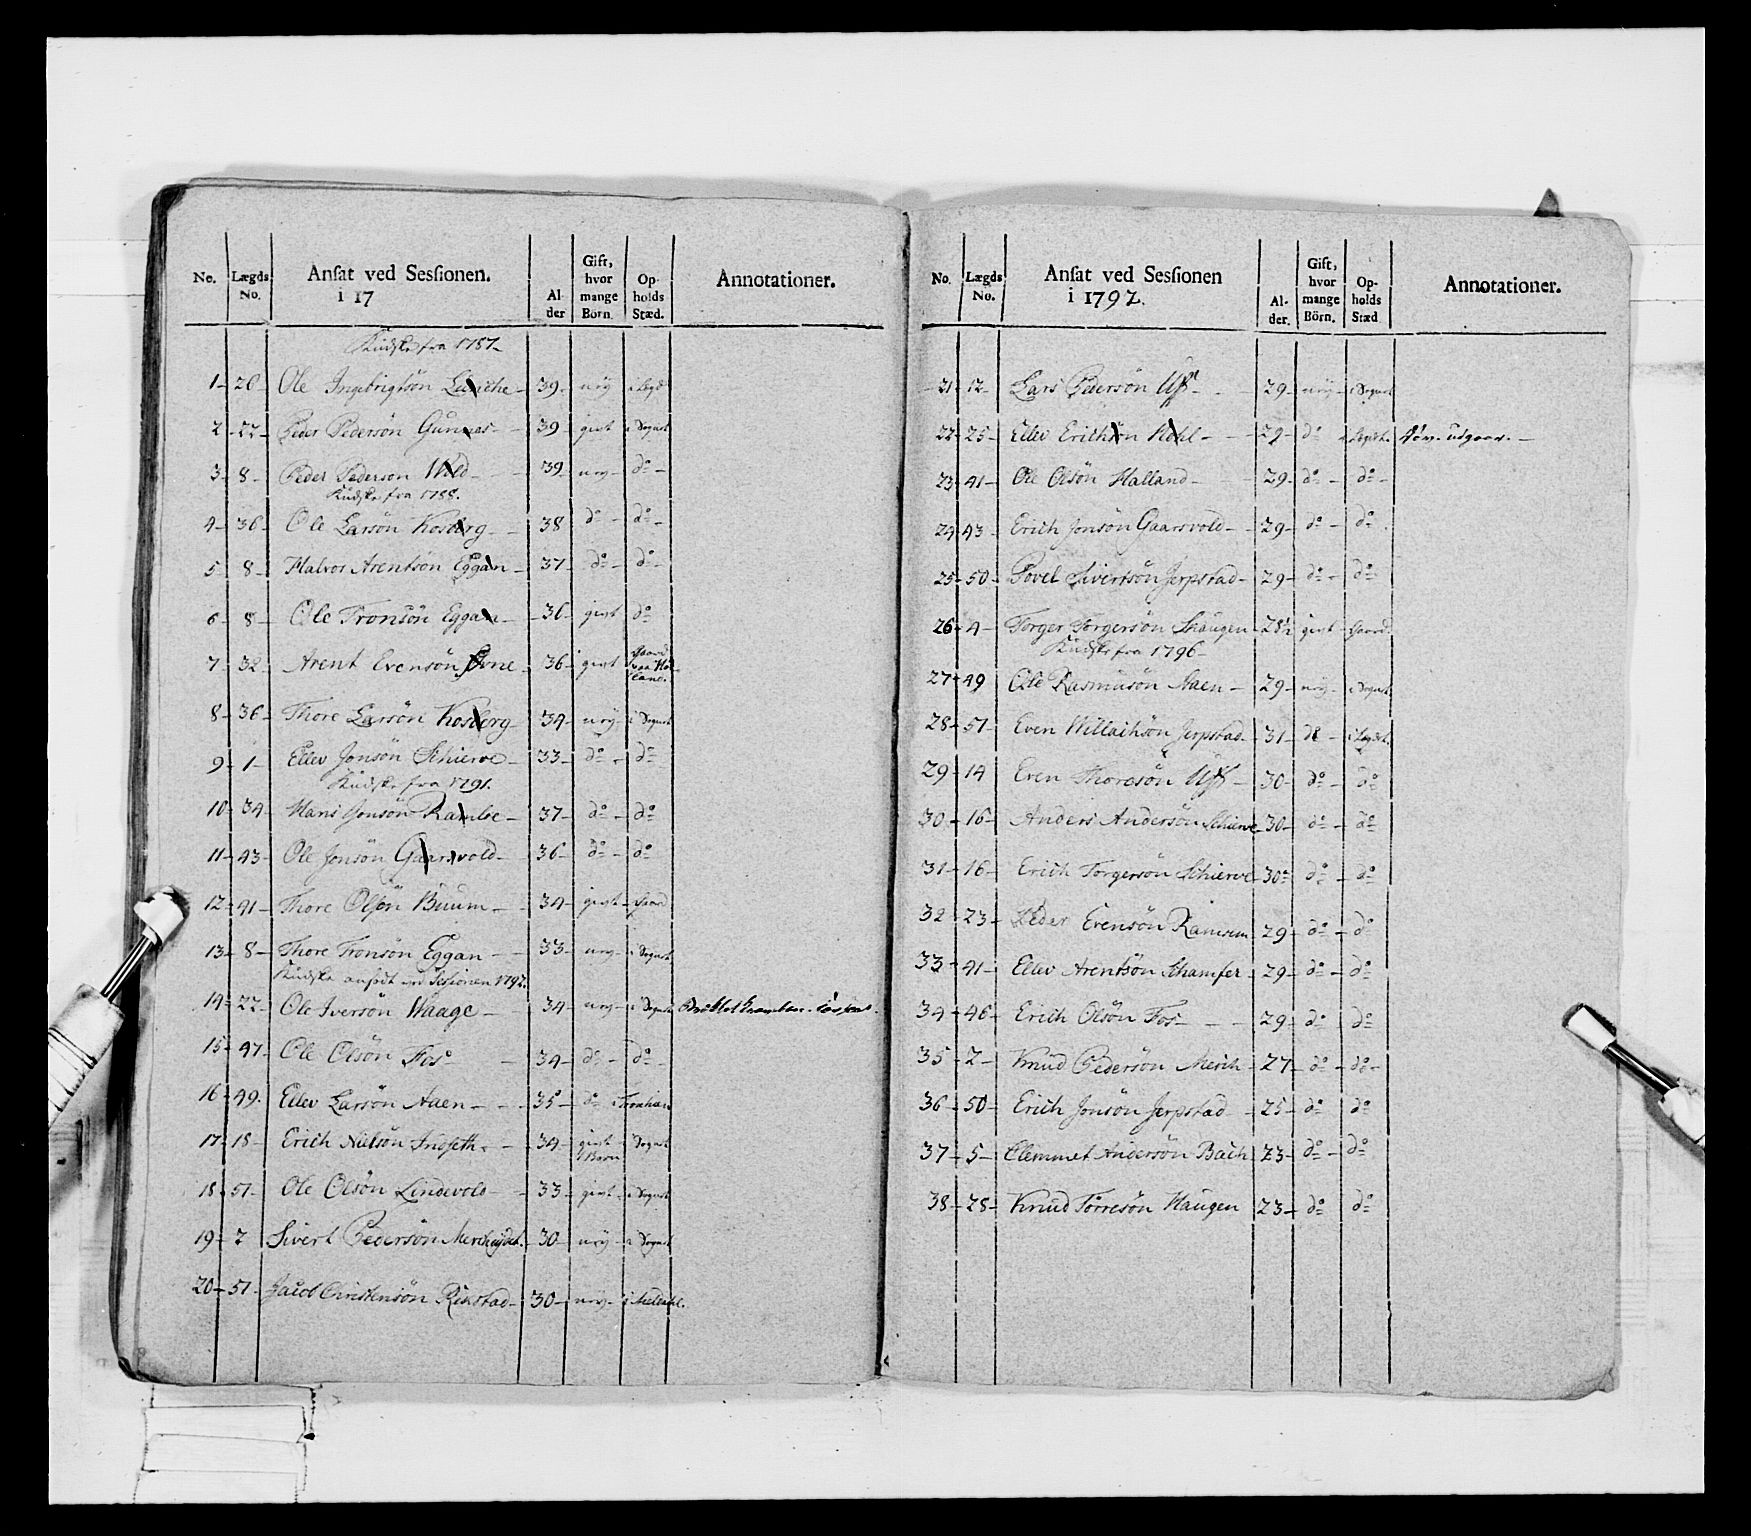 No. Lægds No. Ansat ved Sessionen. i 17 Alder Gift, hvor mange Börn. Opholds Stæd. Annotationer.
Kudske fra 1787
1 - 20 - Ole Ingebrigtsön - 39 - ugiv i Legd
2 - 22 - Peder Pedersön Gunnes - 39 - givt i Sognet
3 - 8 - Peder Pederson Wold - 39 - ugv - do -
Kudske fra 1788.
4 - 36 - Ole Larsön Kosberg - 38 do - do -
5 - 8 - Halvor Arentsön Eggan - 37 - do - do -
6 - 8 - Ole Tronsön Eggan - 36 - givt do
7 - 32 - Arent Evensön - 36 - givt Gaard
8 - 36 - Thore Larsön Kosberg - 34 - ugiv - i Sognet
9 - 1 - Ellev Jonsön Schierve - 33 - do - do
Kudske fra 1791.
10 - 34 - Hans Jonsön Rambe - 37 - do - do
11 - 43 - Ole Jonsön Gaarsvold - 36 - do - do
12 - 41 - Thore Olsön Buum - 34 - givt - Gaard
13 - 8 - Thore Tronsön Eggan - 33 - ugv - i Sognet
Kudske ansadt ved Sessionen 1792.
14 - 22 - Ole Iversön Waage - 34 - ugv - i Sognet
15 - 47 - Ole Olsön Fos - 34 - do - do -
16 - 49. Ellev Larsön Aaen - 35 - do i Tronhiem
17 - 18 - Erich Nielsön Indseth - 34 - givt 4 Börn i Sognet
18 - 51 - Ole Olsön Lindevold - 33 - givt - i Sognet
19 - 2 Sivert Pedersön - 30 - ugiv - i Sognet
20 - 51 - Jacob Christensön Rikstad - 30 - ugiv - i Meldahl.
No. Lægds No. Ansat ved Sessionen i 1792. Alder. Gift, hvor mange Börn. Opholds Stæd Annotationer.
21 - 12 - Lars Pedersön Uf - 29 - ugiv - i Sognet
22 - 25 - Ellev Erichsön Hohl - 29 - do i Legdet. udgaar. -
23 - 41 - Ole Olsön Halland - 29 - do - do -
24 - 43 - Erich Jonsön Gaarsvold - 29 - do - do
25 - 50 - Povel Sivertsön Jerpstad - 29 - do - do
26 - 4 - Torger Torgersön Shaugen - 28½ givt - Gaard.
Kudske fra 1796 -
27 - 49 Ole Rasmusön Aaen - 29 - ugiv - i Sognet
28 - 51 - Even Willachsön Jerpstad - 31 - do - i Legdet.
29 - 14 Even Thoresön Uf - 30 - do - do
30 - 16 - Anders Andersön Schierve - 30 - do - do
31 - 16 - Erich Torgersön Schierve - 30 - do - do
32 - 23 - Peder Evensön Ramsem - 29 - do - do
33 - 41 - Ellev Arentsön Schamfer - 29 - do - do
34 - 46 - Erich Olsön Fos - 29 - do do
35 - 2 - Knud Pedersön Merch - 27 - do - do -
36 - 50 - Erich Jonsön Jerpstad - 25 - do do
37 - 5 - Clemmet Andersön Bach 23 - do - do
38 - 28 - Knud Törresön Haugen 23 - do do